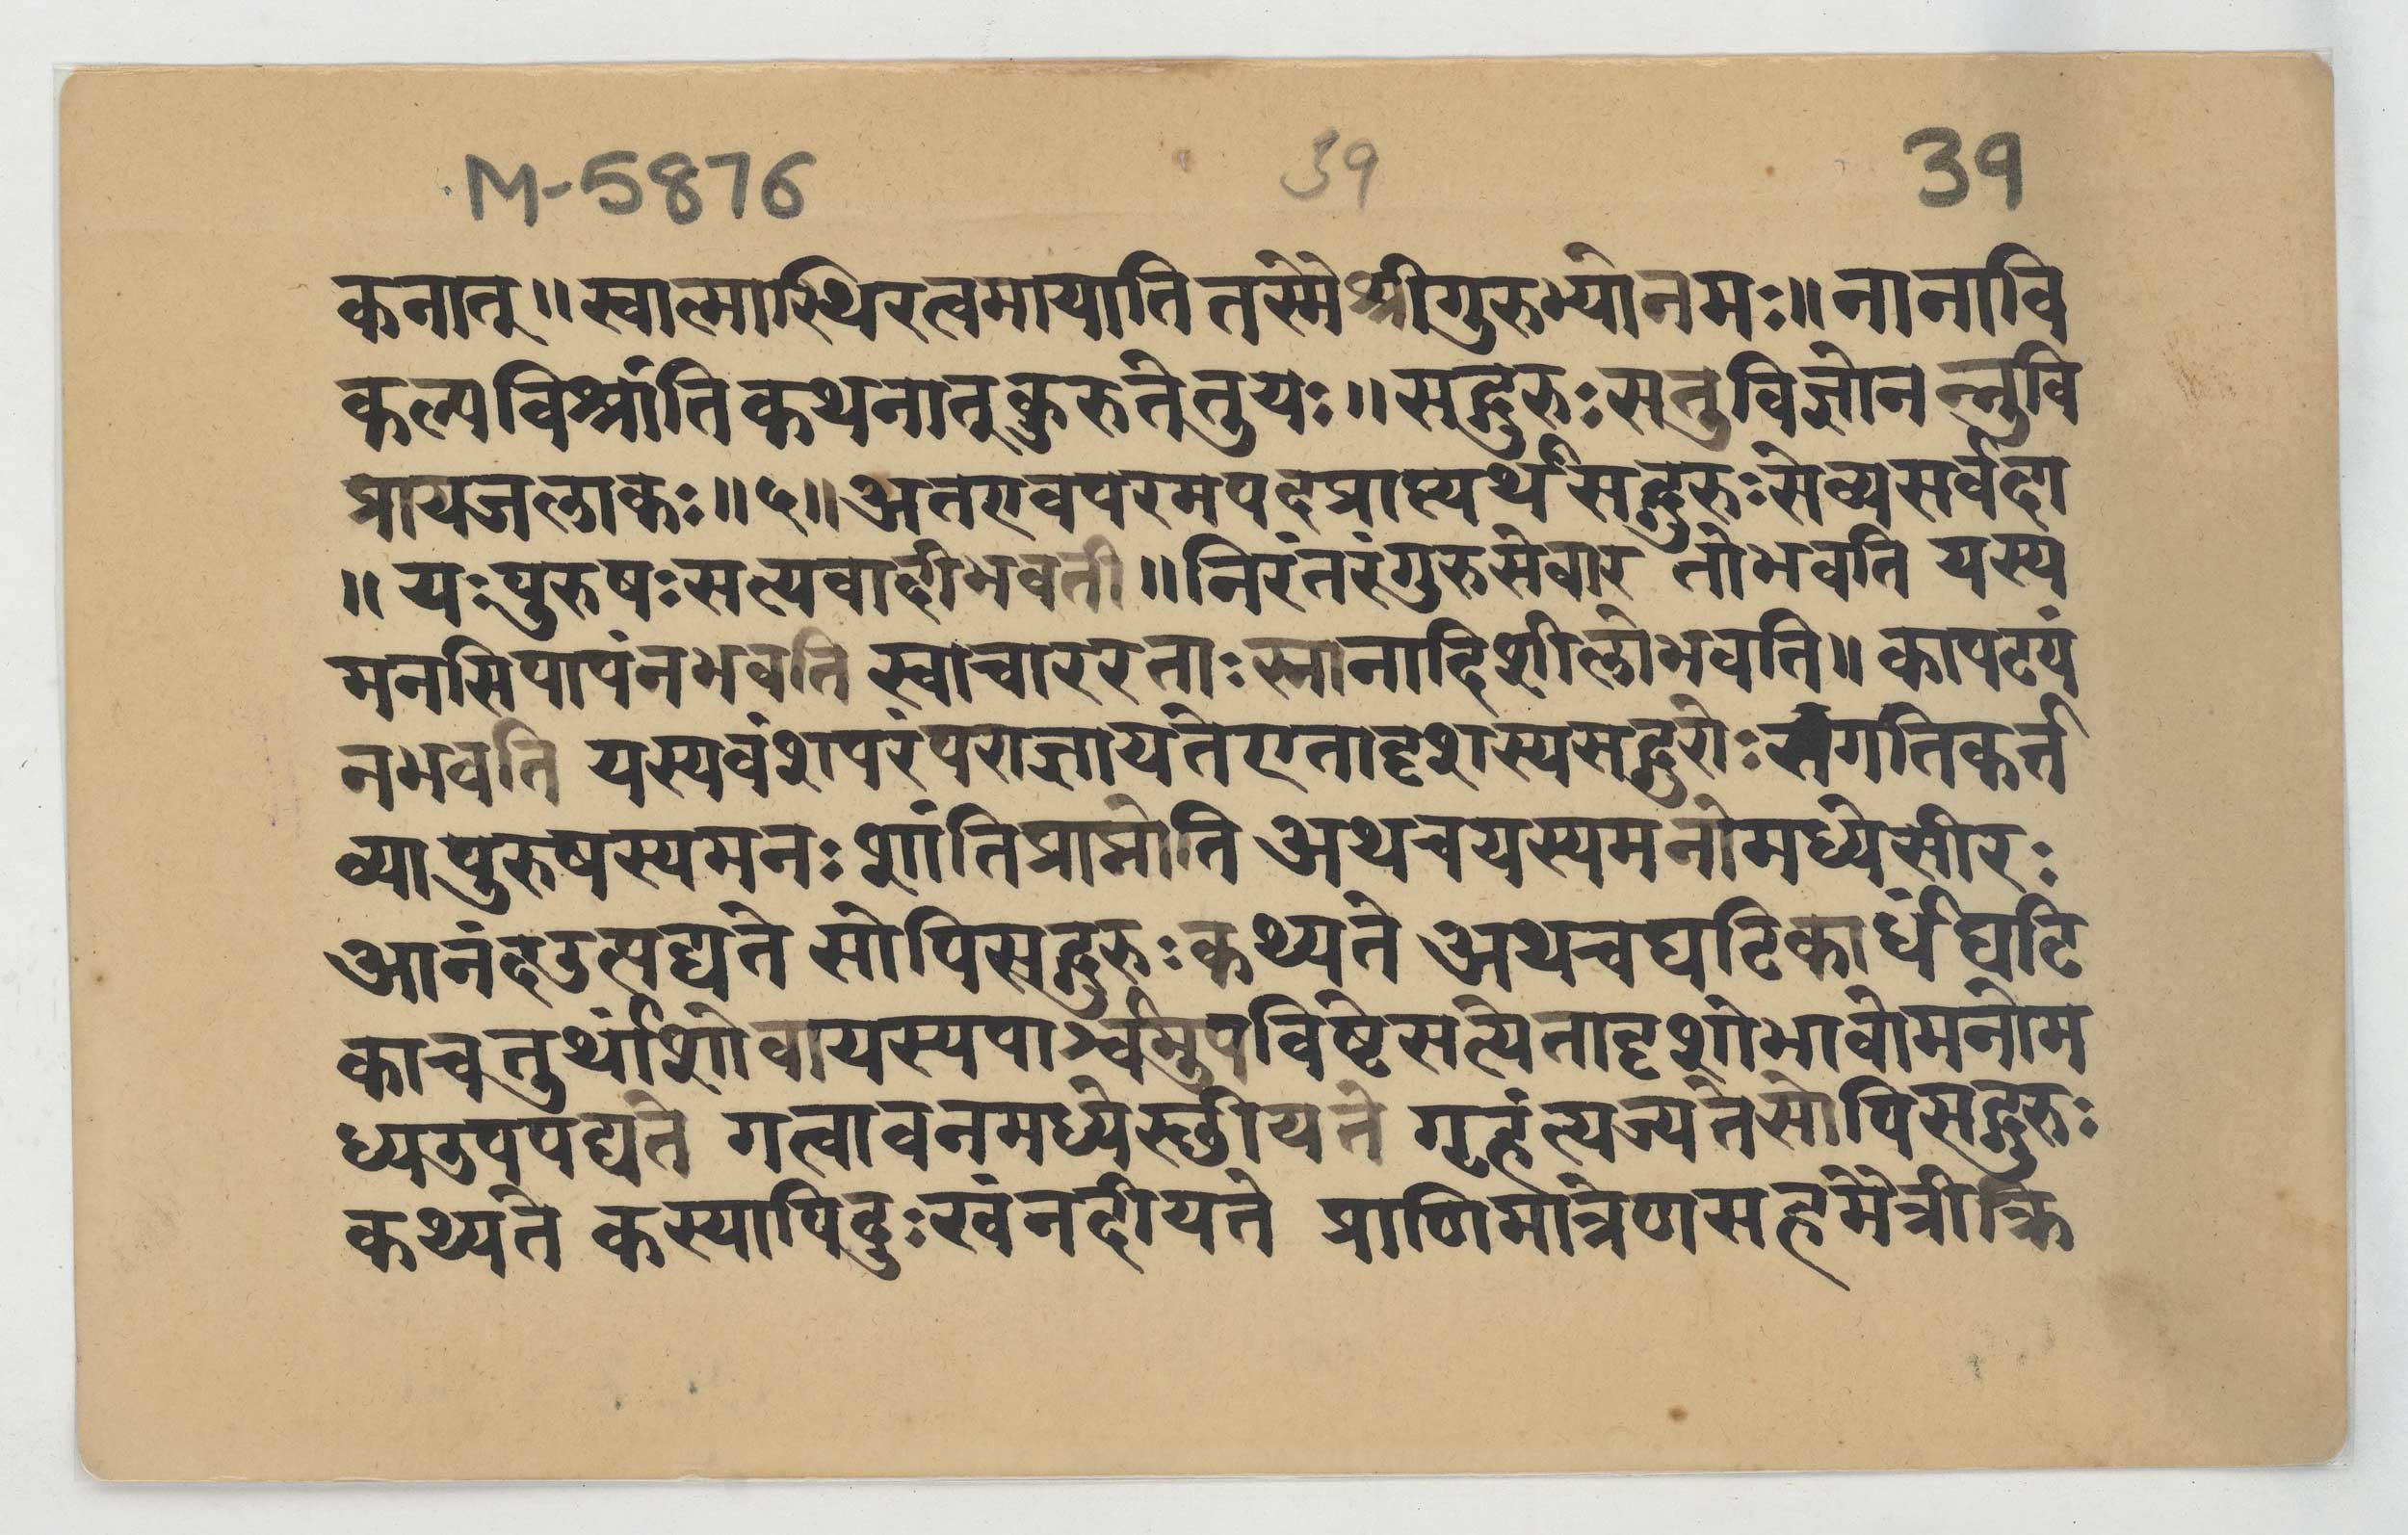 M-5876 39 39
कनात्॥स्वात्मास्थिरत्वमायाति तस्मै श्रीगुरुभ्योनमः॥नानावि
कल्पविश्रांतिकथनात्कुरुतेतुयः॥सद्गुरुःसतुविज्ञेोनन्नुवि
प्रायजलाकः॥५॥अतएवपरमपदप्राप्त्यर्थंसद्गुरुःसेव्यसर्वदा
॥यःपुरुषःसत्यवादीभवती॥निरंतरंगुरुसेवार तोभवति यस्य
मनसिपापंनभवति स्वाचाररताःस्नानादिशीलोभवति॥कापट्यं
नभवति यस्यवंशपरंपराज्ञायतेएतादृशस्यसद्गुरोःसंगतिकर्त
व्यापुरुषस्यमनःशांतिप्राप्नोति अथचयस्यमनोमध्येसीरः
आनंदउत्पद्यते सोपिसद्गुरुःकथ्यते अथचघटिकार्धंघटि
काचतुर्थांशोवायस्यपार्श्वमुपविष्टेसत्येतादृशोभावोमनोम
ध्यउपपद्यते गत्वावनमध्येस्छीयते गृहंत्यज्यतेसोपिसद्गुरुः
कथ्यते कस्यापिदुःखंनदीयते प्राणिमात्रेणसहमैत्रीक्रि